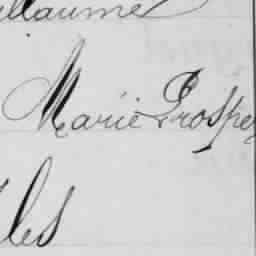 illaume
Marie Prosper
les